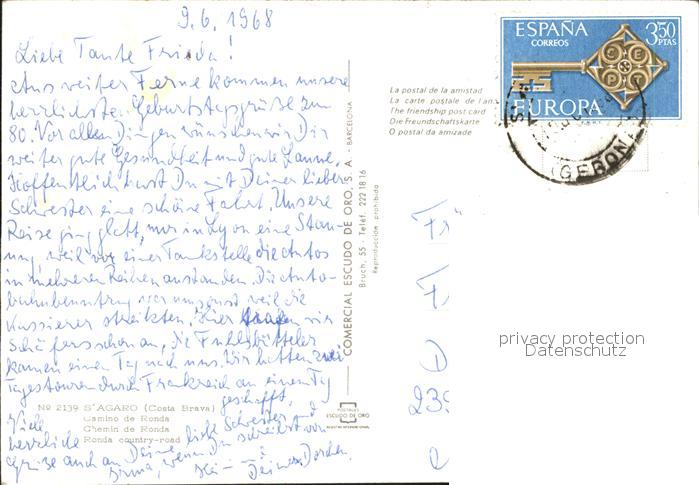 9.6.1968
Liebe Tante Frieda!
Aus weiter Ferne kommen unsere
herzlichsten Geburtstagsgrüße zum
80. Vor allen Dingen wünschen wir Dir
weiter gute Gesundheit und gute Laune.
Hoffentlich hast Du mit Deiner lieben
Schwester eine schöne Fahrt. Unsere
Reise ging glatt, nur in Lyon eine Stau-
ung, weil vor einer Tankstelle die Autos
in mehreren Reihen anstanden. Die Auto-
bahnbenutzung war umsonst weil die
Kassierer streikten. Hier trafen wir
Schäfers schon an, die Fuhlsbütteler
kamen einen Tag nach uns. Wir hatten zwei
Tagestouren durch Frankreich an einem Tag
geschafft.
Viele
herzliche
Grüße auch an Deine liebe Schwester und
wenn Du schreibst von
Deinen
No 2139 S'AGARO (Costa Brava)
Camino de Ronda
Chemin de Ronda
Ronda country-road
POSTALES
ESCUDO DE ORO
COMERCIAL ESCUDO DE ORO, S. A. - BARCELONA
Bruch, 55 - Teléf. 222 18 16
Reproducción prohibida
La postal de la amistad
La carte postale de l'am
The friendship post card
Die Freundschaftskarte
O postal da amizade
ESPAÑA
CORREOS
3,50
PTAS
CEPT
EUROPA
(GERONA)
F
D
239
privacy protection
Datenschutz